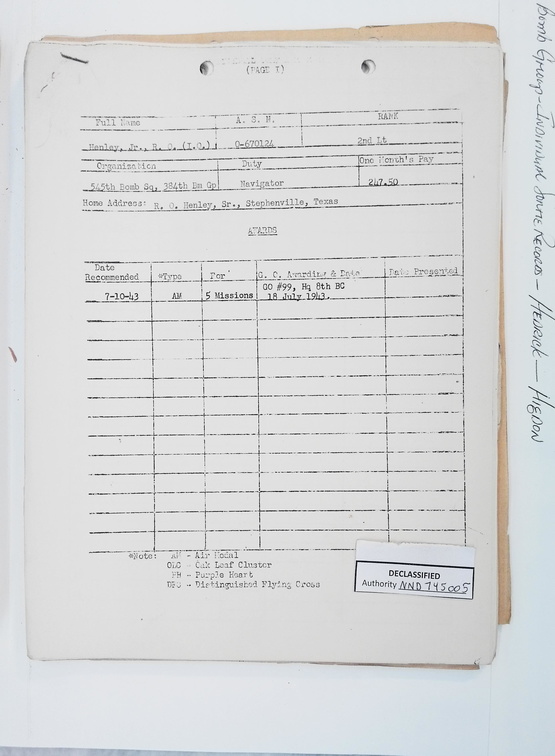 (PAGE I)
Full Name A. S. N. RANK
Henley, Jr., R. O. (I.O.) O-670124 2nd Lt
Organization Duty One Month's Pay
545th Bomb Sq, 384th Bm Gp Navigator 247.50
Home Address: R. O. Henley, Sr., Stephenville, Texas
AWARDS
Date Recommended *Type For G. O. Awarding & Date Date Presented
7-10-43 AM 5 Missions GO #99, Hq 8th BC
18 July 1943.
*Note: AM - Air Medal
OLC - Oak Leaf Cluster
PH - Purple Heart
DFC - Distinguished Flying Cross
DECLASSIFIED
Authority NND 745005
Bomb Group - Individual Sortie Records - Hedrick - Higdon